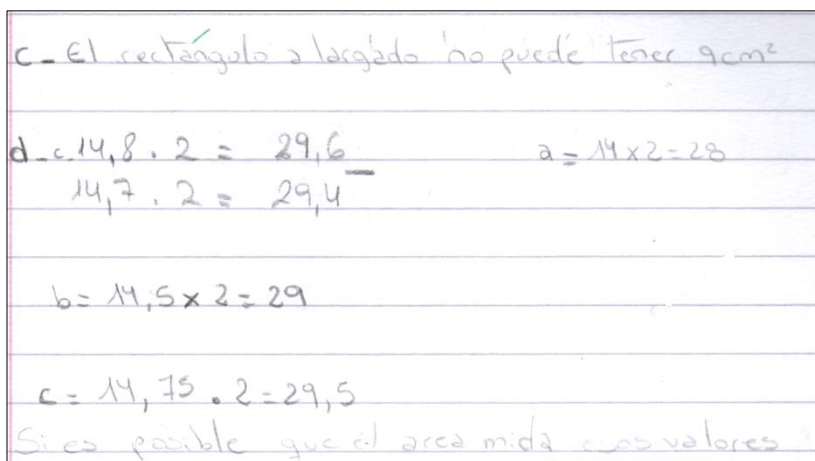 c- El rectángulo alargado no puede tener 9cm²
d- c. 14,8 . 2 = 29,6 a = 14 x 2 = 28
14,7 . 2 = 29,4
b = 14,5 x 2 = 29
c = 14,75 . 2 = 29,5
Si es posible que el area mida esos valores